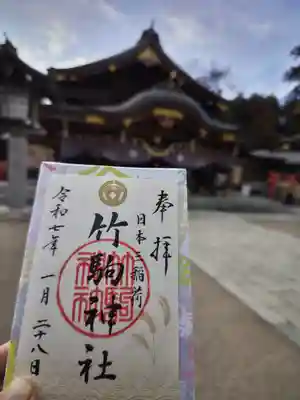 奉拝
日本三稲荷
竹駒神社
令和七年
一月二十八日